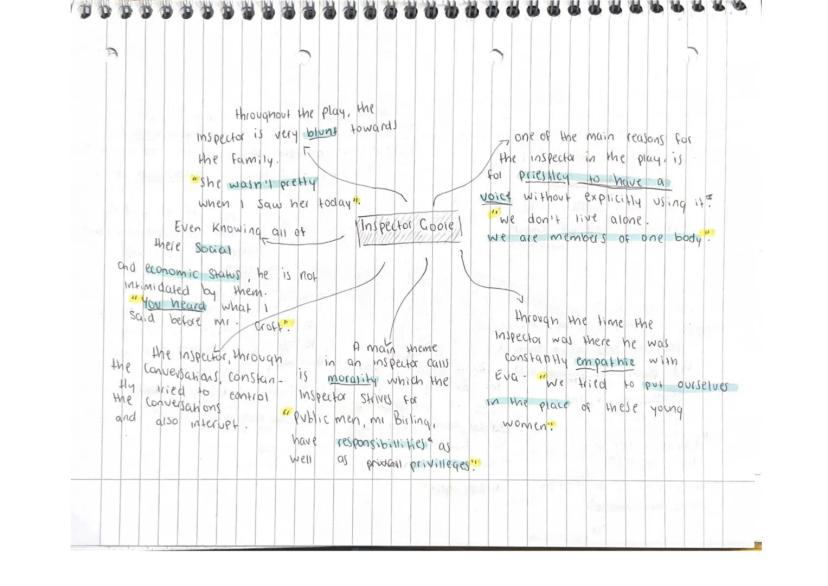 throughout the play, the
Inspector is very blunt towards
the family.
"She wasn't pretty
when I saw her today".
one of the main reasons for
the inspector in the play, is
for priestley to have a
voice without explicitly using it.
"we don't live alone.
we are members of one body".
Inspector Goole
Even knowing all of
there social
and economic status, he is not
intimidated by them.
"You heard what I
said before mr. Croft".
the inspector, through
the conversations, constan-
tly tried to control
the conversations
and also interupt.
A main theme
in an inspector calls
is morality which the
Inspector strives for
"Public men, mr Birling,
have responsibilities as
well as privilleges".
through the time the
Inspector was there he was
constantly empathic with
Eva. "we tried to put ourselves
in the place of these young
women".